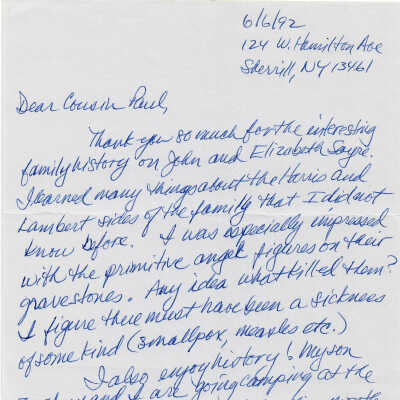 6/6/92
124 W. Hamilton Ave
Sherrill, NY 13461
Dear Cousin Paul,
Thank you so much for the interesting
family history on John and Elizabeth Sayre.
I learned many things about the Harris and
Lambert sides of the family that I did not
know before. I was especially impressed
with the primitive angel figures on their
gravestones. Any idea what killed them?
I figure there must have been a sickness
of some kind (smallpox, measles etc.)
I also enjoy history! My son
and I are going camping at the